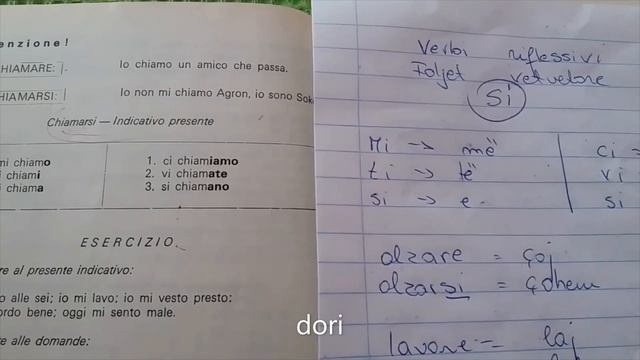 enzione!
CHIAMARE: Io chiamo un amico che passa.
CHIAMARSI: Io non mi chiamo Agron, io sono Sok
Chiamarsi — Indicativo presente
mi chiamo 1. ci chiamiamo
i chiami 2. vi chiamate
i chiama 3. si chiamano
ESERCIZIO
re al presente indicativo:
o alle sei; io mi lavo; io mi vesto presto:
ordo bene; oggi mi sento male.
re alle domande:
Verbi riflessivi
Foljet vetvetore
si
Mi -> më ci =
ti -> të vi
si -> e si
alzare = çoj
alzarsi = çohem
lavare = laj
dori